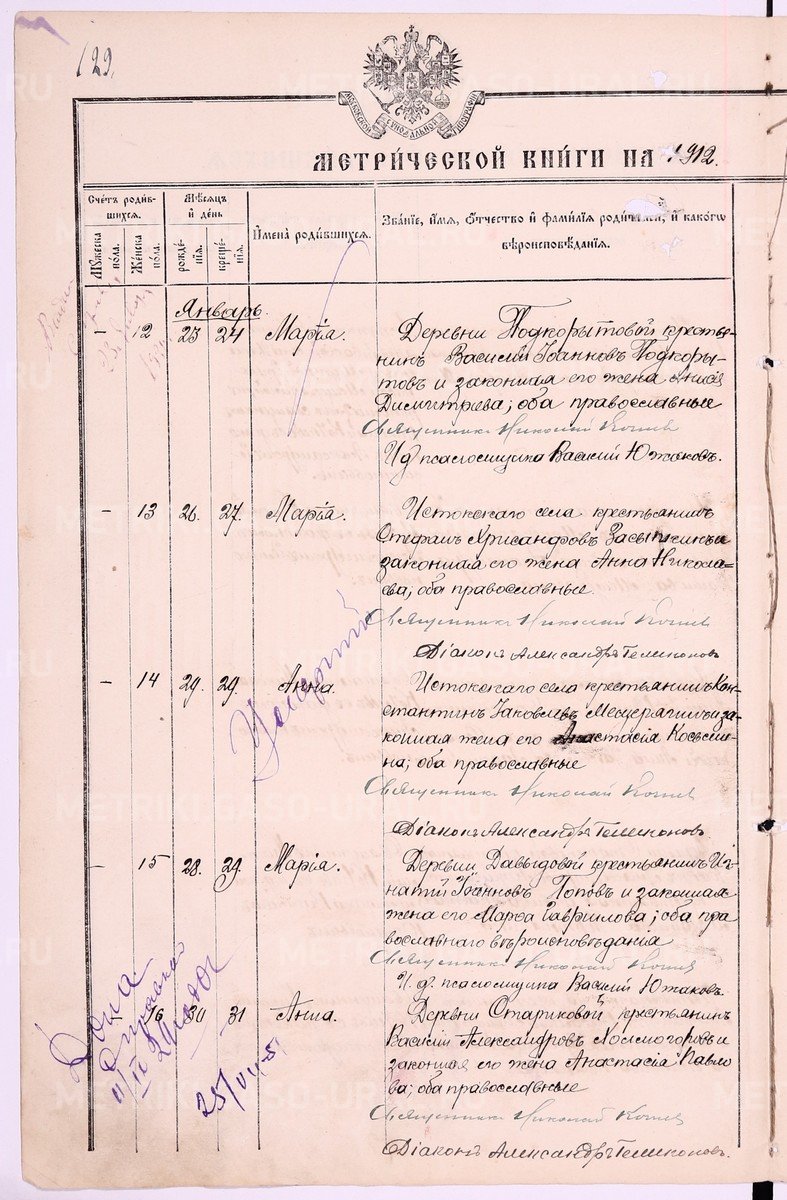 129.
МОСКОВСКОЙ СѴНОДАЛЬНОЙ ТИПОГРАФІИ
МЕТРИ́ЧЕСКОЙ КНИ́ГИ НА 1912.
Сче́тъ роди́вшихся.
Мѣ́сяцъ и҆ де́нь
И҆мена̀ роди́вшихся.
Зва́нїе, и҆́мя, ѻ҆́тчество и҆ фами́лїя роди́телей, и҆ како́гѡ вѣроисповѣ́данїя.
Му́жеска по́ла.
Же́нска по́ла.
рожде́нїя.
креще́нїя.
Январь.
– 12 23 24 Марія.
Деревни Подкорытовой крестья-
нинъ Василій Іоанновъ Подкоры-
товъ и законная его жена Анисія
Димитріева; оба православные
Священникъ Николай
И.д. псаломщика Василій Южаковъ.
– 13 26. 27. Марія.
Истокскаго села крестьянинъ
Стефанъ Хрисанфовъ Засыпкинъ и
законная его жена Анна Никола-
ева; оба православные.
Священникъ Николай
Діаконъ Александръ
– 14 29. 29. Анна.
Истокскаго села крестьянинъ Кон-
стантинъ Іаковлевъ Мещерягинъ и за-
конная жена его Анастасія Косьми-
на; оба православные
Священникъ Николай
Діаконъ Александръ
– 15 28. 29. Марія.
Деревни Давыдовой крестьянинъ Иг-
натій Іоанновъ Поповъ и законная
жена его Марѳа Гавріилова; оба пра
вославнаго вѣроисповѣданія
Священникъ Николай
И.д. псаломщика Василій Южаковъ.
– 16 30 31 Анна.
Деревни Стариковой крестьянинъ
Василій Александровъ Холмогоровъ и
законная его жена Анастасія Павло
ва; оба православные
Священникъ Николай
Діаконъ Александръ
25/VII-51